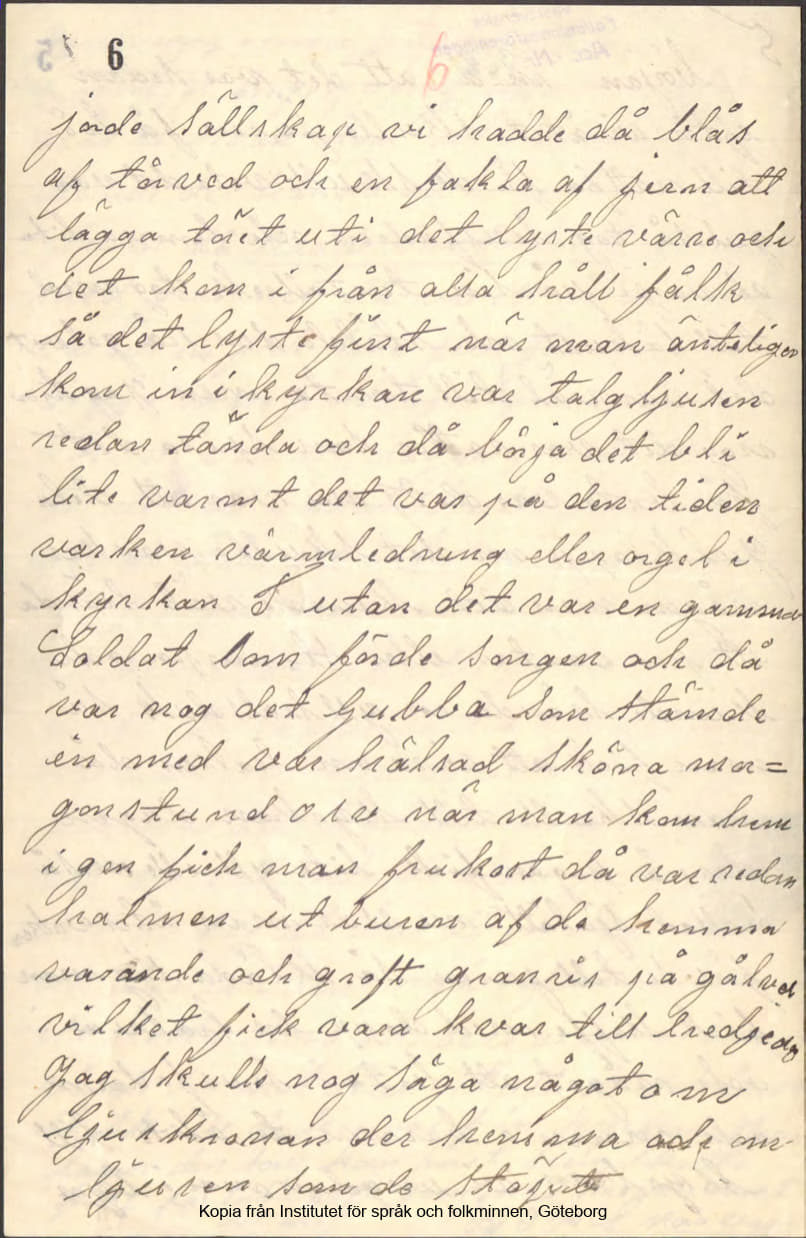 6 6
jorde sällskap vi hadde då blås
af törved och en fakla af jern att
lägga töret uti det lyste värre och
det kom i från alla håll fålk
så det lyste fint när man änteligen
kom in i kyrkan var talgljusen
redan tända och då börja det bli
lite varmt det var på den tiden
varken värmledning eller orgel i
kyrkan utan det var en gammal
Soldat som förde songen och då
var nog det Gubba som stämde
in med var hälsad sköna mor=
gonstund o s v när man kom hem
i gen fick man frukost då var redan
halmen ut buren af de hemma
varande och groft granris på gålvet
vilket fick vara kvar till tredjedag
Jag skulle nog säga något om
ljuskronan der hemma och om
ljusen som de stöpt
Kopia från Institutet för språk och folkminnen, Göteborg